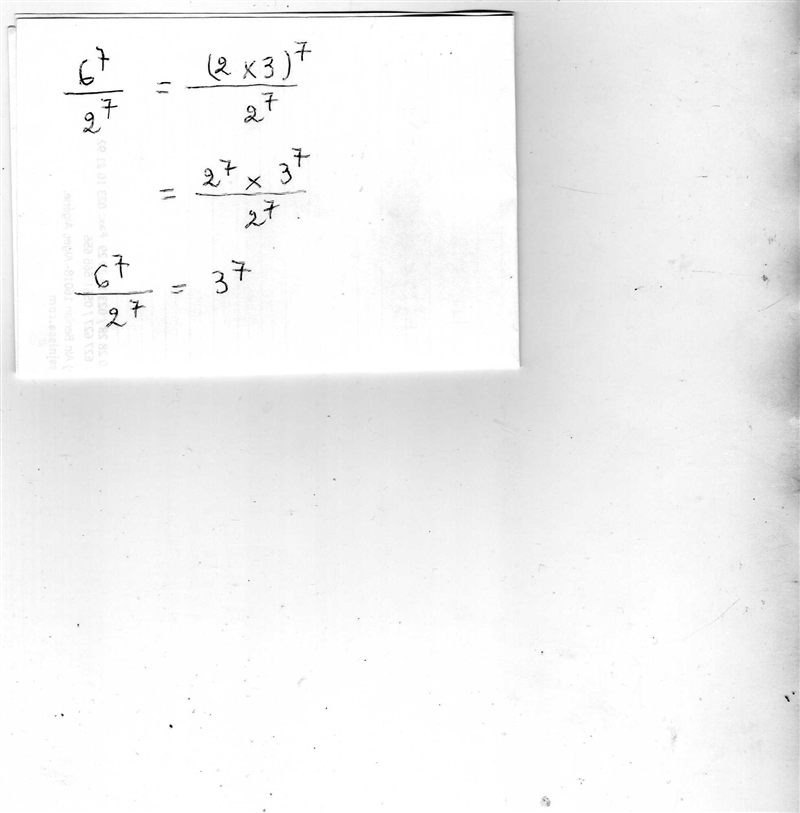 6⁷/2⁷ = (2 × 3)⁷/2⁷
= 2⁷ × 3⁷/2⁷
6⁷/2⁷ = 3⁷